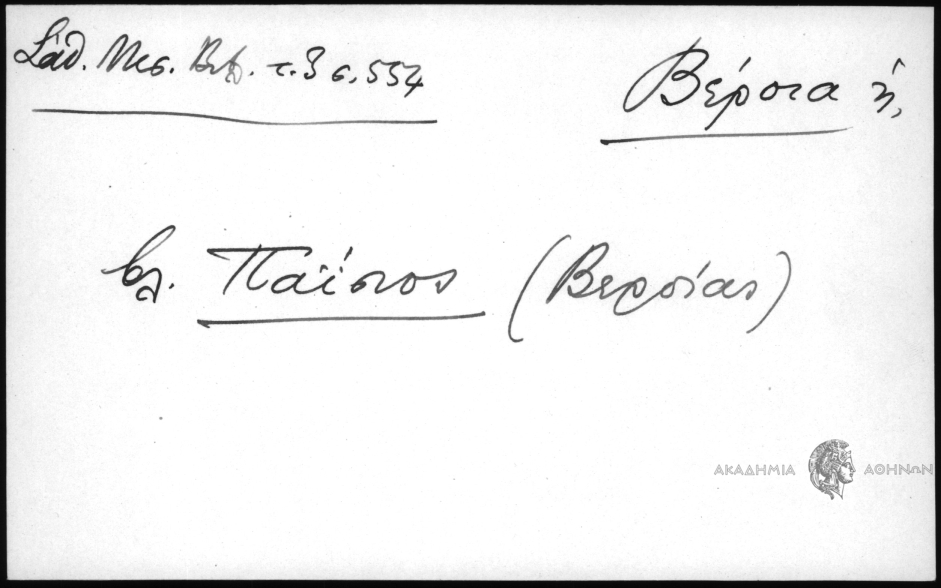 Σάθ. Μεσ. Βιβ. τ. 3 σ. 554
Βέροια ἡ,
βλ. Παΐσιος (Βεροίας)
ΑΚΑΔΗΜΙΑ ΑΘΗΝΩΝ